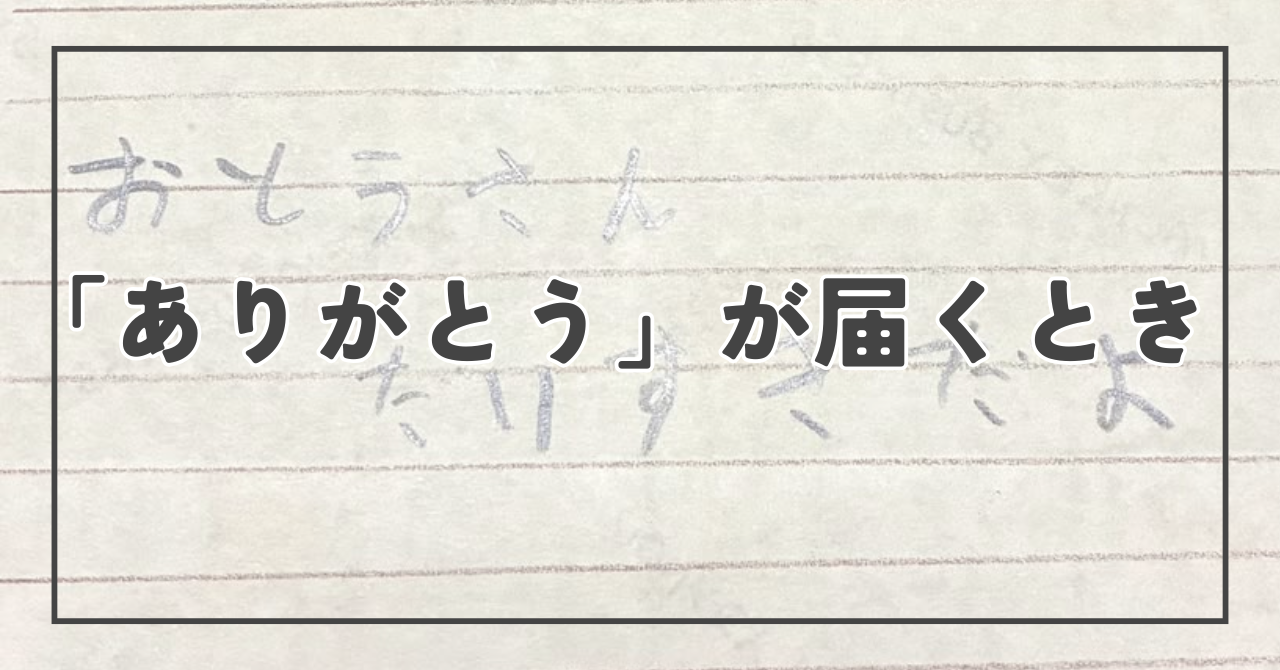 おとうさん
「ありがとう」が届くとき
だいすきだよ